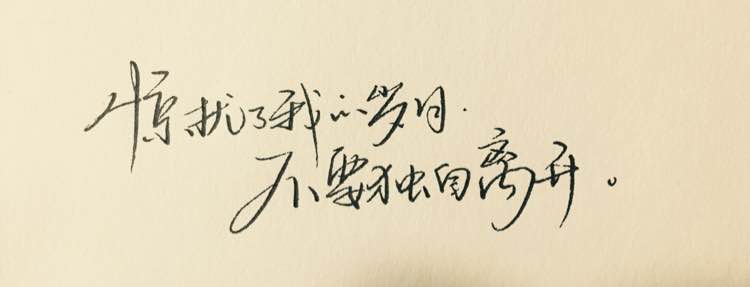 惊扰了我的岁月.
不要独自离开。